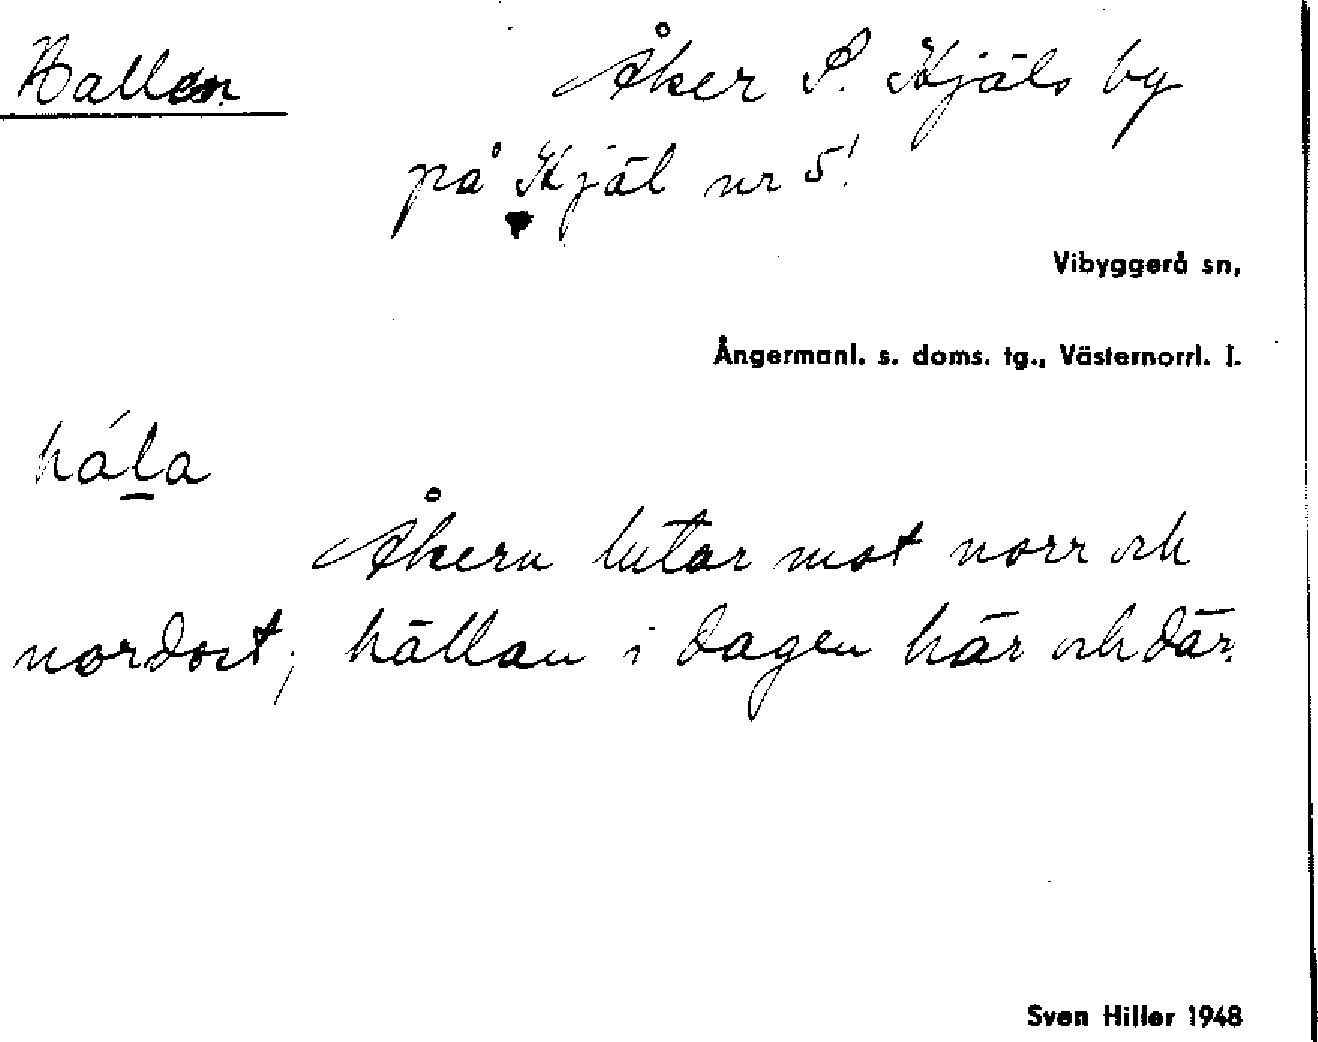 Hallen Åker S. Kjäls by
på Kjäl nr 5!
Vibyggerå sn,
Ångermanl. s. doms. tg., Västernorrl. l.
hála
Åkern lutar mot norr och
nordost; hällan i dagen här och där.
Sven Hiller 1948